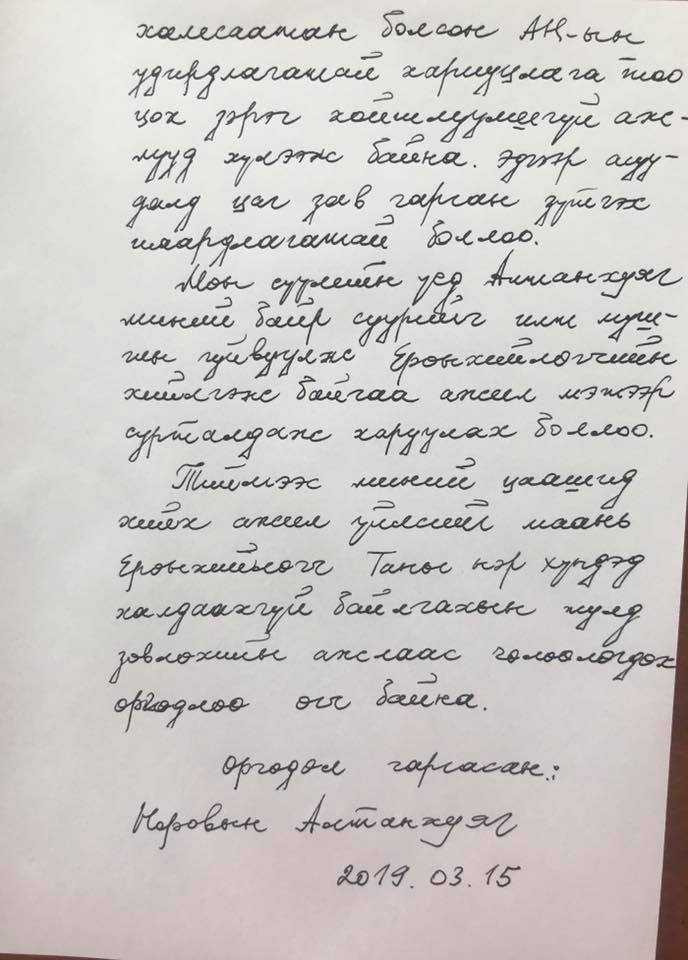 халсаатан болсон АН-ын
удирдлагатай хариуцлага тоо
цох зэрэг хойшлуулшгүй аж-
лууд хүлээж байна. Эдгээр асуу-
далд цаг зав гарган зүтгэх
шаардлагатай боллоо.
Мөн сүүлийн үед Алтанхуяг
миний байр суурийг илт муш-
гин гуйвуулж Ерөнхийлөгчийн
хийлгэж байгаа ажил мэтээр
сурталдаж харуулах боллоо.
Тиймээс миний цаашид
хийх ажил үйлсийг маань
Ерөнхийлөгч Таны нэр хүндэд
халдаахгүй байлгахын тулд
зөвлөхийн ажлаас чөлөөлөгдөх
өргөдлөө өгч байна.
Өргөдөл гаргасан:
Норовын Алтанхуяг
2019.03.15